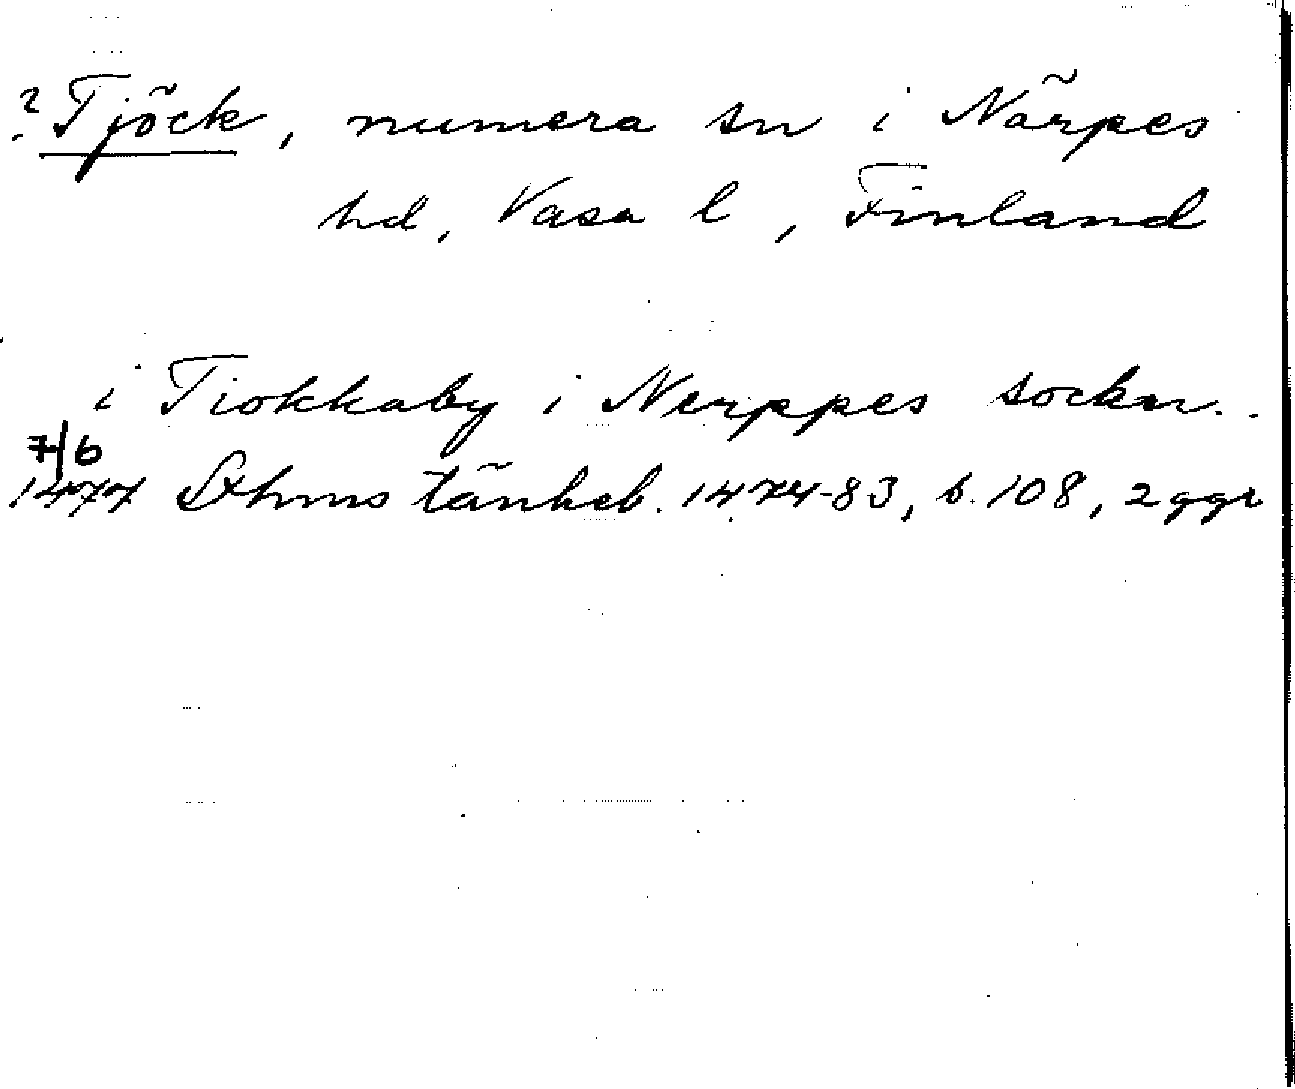 ? Tjöck, numera sn i Närpes
hd, Vasa l, Finland
i Tiokkaby i Nerppes sockn..
7/6
1477 Sthms tänkeb. 1474-83, s. 108, 2 ggr